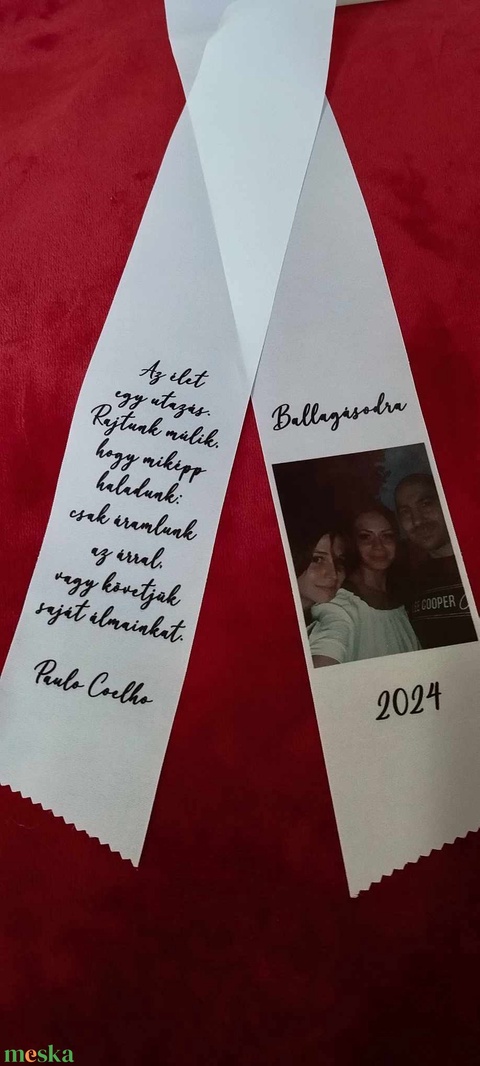 Az élet
egy utazás.
Rajtunk múlik,
hogy miképp
haladunk:
csak áramlunk
az árral,
vagy követjük
saját álmainkat.
Paulo Coelho
Ballagásodra
EE COOPER
2024
meska